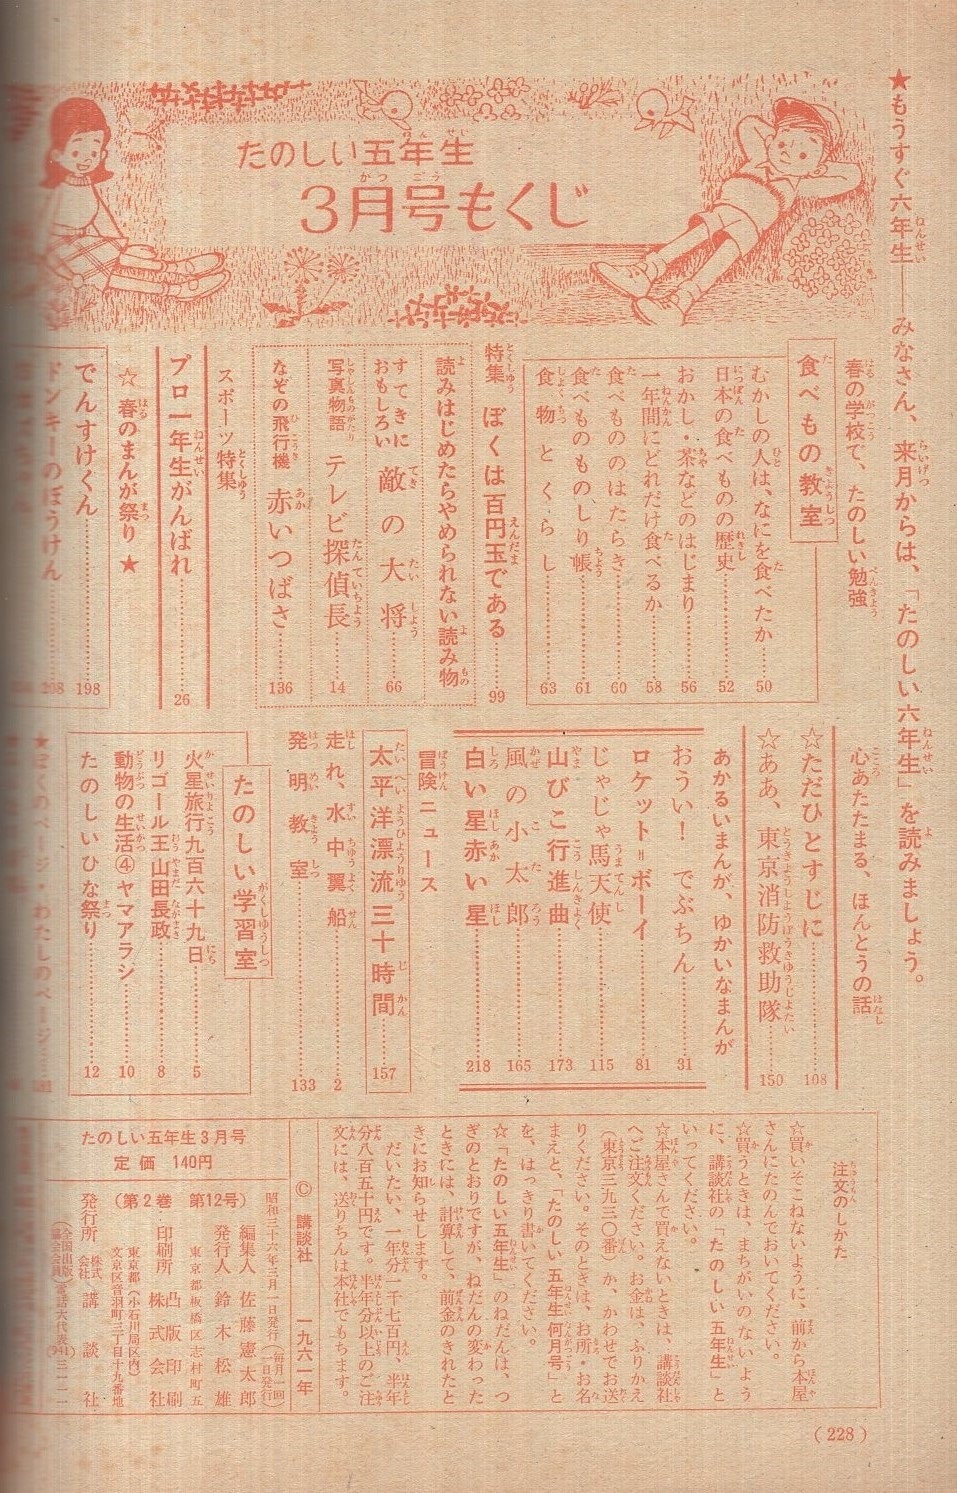 ★もうすぐ六年生――みなさん、来月からは、「たのしい六年生」を読みましょう。
たのしい五年生
3月号もくじ
春の学校で、たのしい勉強
食べもの教室
むかしの人は、なにを食べたか……50
日本の食べものの歴史……52
おかし・茶などのはじまり……56
一年間にどれだけ食べるか……58
食べもののはたらき……60
食べものものしり帳……61
食物とくらし……63
特集 ぼくは百円玉である……99
読みはじめたらやめられない読み物
すてきにおもしろい 敵の大将……66
写真物語 テレビ探偵長……14
なぞの飛行機 赤いつばさ……136
スポーツ特集
プロ一年生がんばれ……26
☆春のまんが祭り★
でんすけくん……198
ドンキーのぼうけん……208
心あたたまる、ほんとうの話
☆ただひとすじに……108
☆ああ、東京消防救助隊……150
あかるいまんが、ゆかいなまんが
おうい!でぶちん……31
ロケット=ボーイ……81
じゃじゃ馬天使……115
山びこ行進曲……173
風の小太郎……165
白い星赤い星……218
冒険ニュース
太平洋漂流三十時間……157
走れ、水中翼船……2
発明教室……133
たのしい学習室
火星旅行九百六十九日……5
リゴール王山田長政……8
動物の生活④ヤマアラシ……10
たのしいひな祭り……12
★ぼくのページ・わたしのページ……
注文のしかた
☆買いそこねないように、前から本屋
さんにたのんでおいてください。
☆買うときは、まちがいのないよう
に、講談社の「たのしい五年生」と
いってください。
☆本屋さんで買えないときは、講談社
へご注文ください。お金は、ふりかえ
(東京三九三〇番)か、かわせでお送
りください。そのときは、お所・お名
まえと、「たのしい五年生何月号」と
を、はっきり書いてください。
☆「たのしい五年生」のねだんは、つ
ぎのとおりですが、ねだんの変わった
ときには、計算して、前金のきれたと
きにお知らせします。
だいたい、一年分一千七百円、半年
分八百五十円です。半年分以上のご注
文には、送りちんは本社でもちます。
© 講談社 一九六一年
たのしい五年生3月号
定価 140円
(第2巻 第12号)
昭和三十六年三月一日発行(毎月一回一日発行)
編集人 佐藤憲太郎
発行人 鈴木松雄
東京都板橋区志村町五
印刷所 凸版印刷株式会社
東京都(小石川局区内)
文京区音羽町三丁目十九番地
発行所 株式会社 講談社
(全国出版協会会員)電話大代表(941)三一一一
(228)